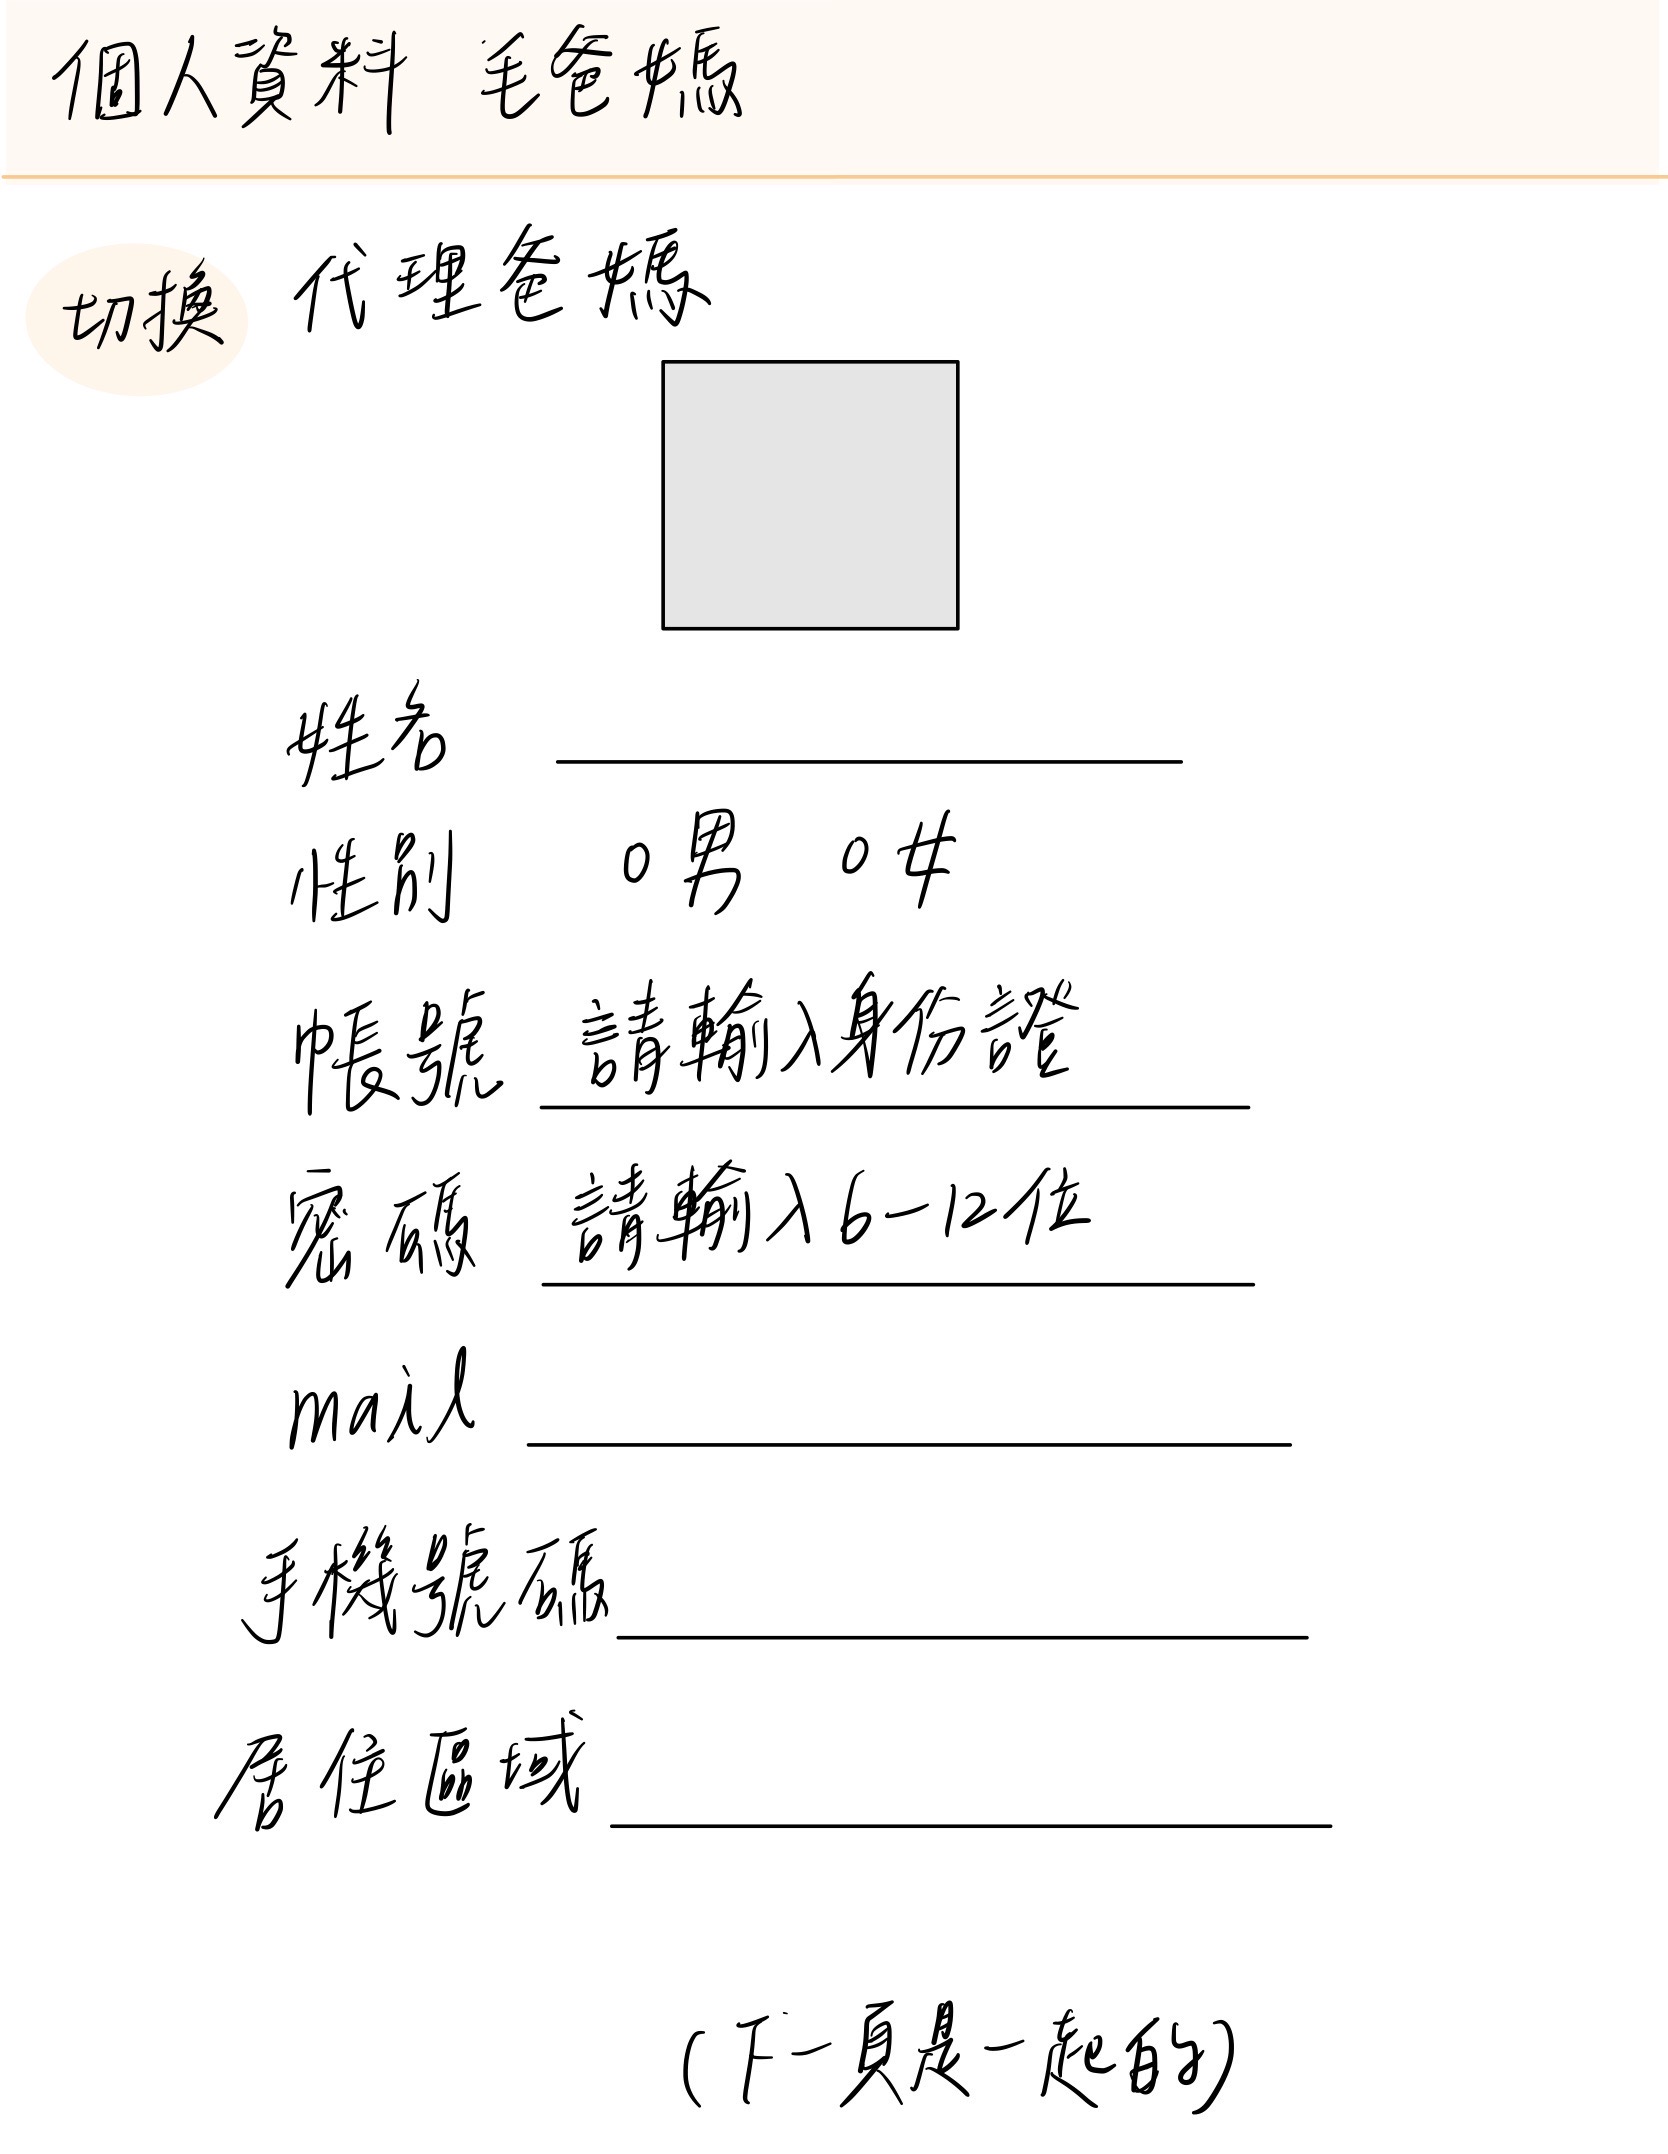 個人資料 毛爸媽
切換 代理爸媽
姓名
性別 ○男 ○女
帳號 請輸入身份證
密碼 請輸入6-12位
mail
手機號碼
居住區域
(下一頁是一起的)